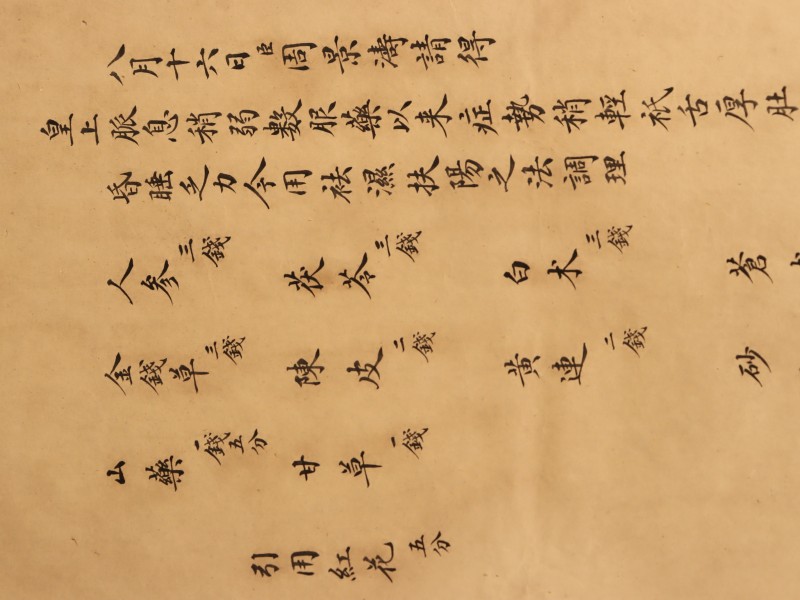 八月十六日臣周景濤請得
皇上脈息稍弱數服藥以来症勢稍輕祇舌厚肚
昏睡乏力今用祛濕扶陽之法調理
人参三錢 茯苓三錢 白术三錢 蒼
金錢草三錢 陳皮二錢 黃連二錢 砂
山藥一錢五分 甘草一錢
引用紅花五分